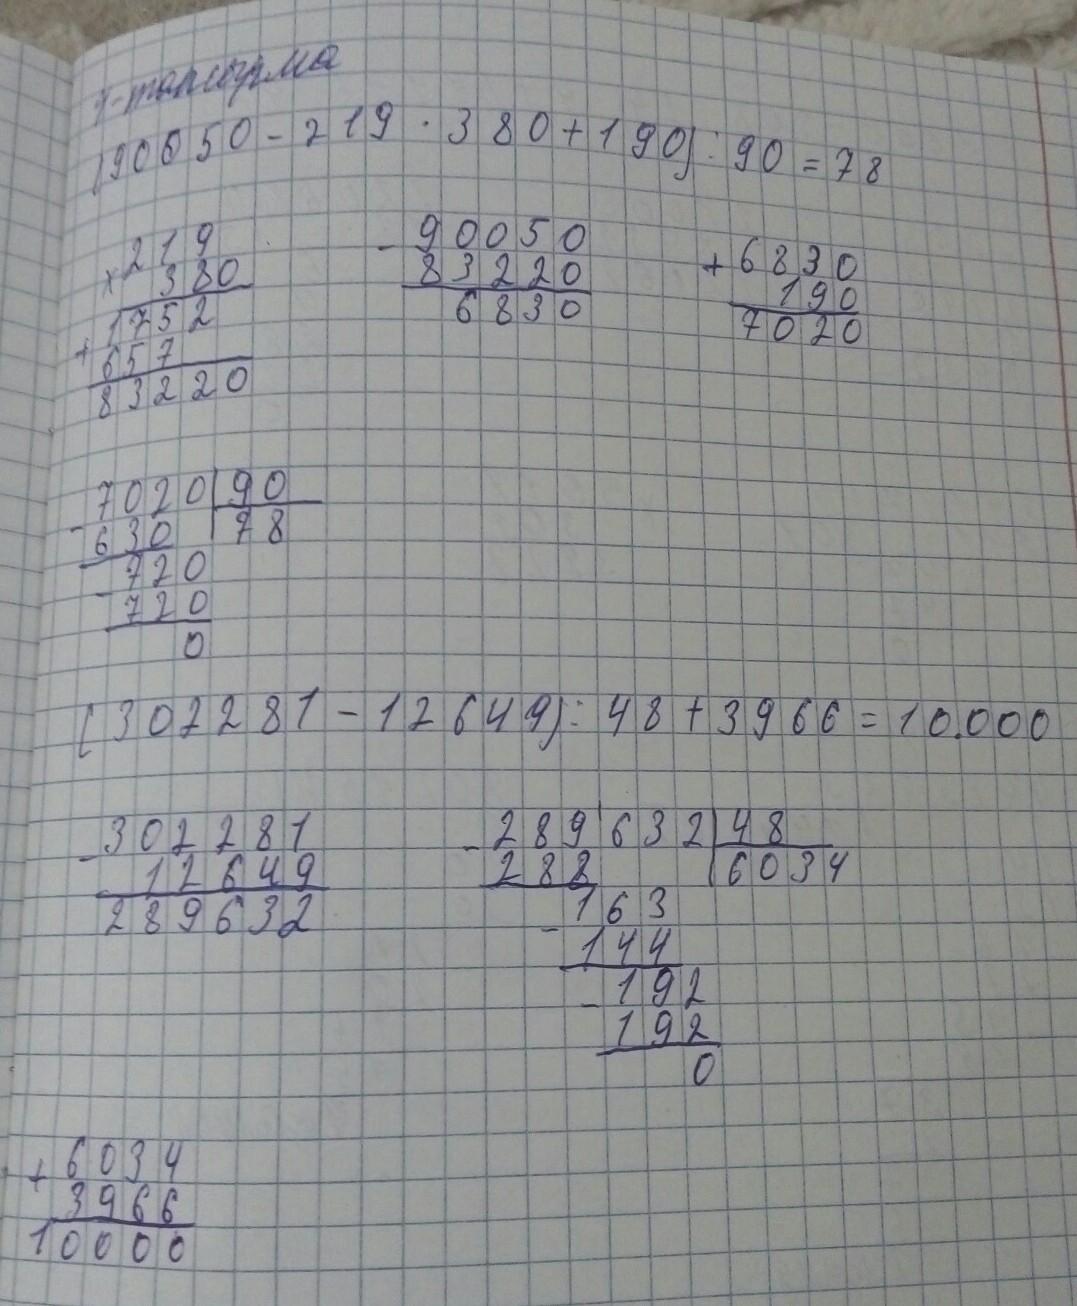 1-тапсырма
(90050-219·380+190):90=78
×219
380
1752
+657
83220
-90050
83220
6830
+6830
190
7020
-7020|90
630 78
-720
720
0
(302281-12649):48+3966=10.000
-302281
12649
289632
-289632|48
288 6034
-163
144
-192
192
0
+6034
3966
10000